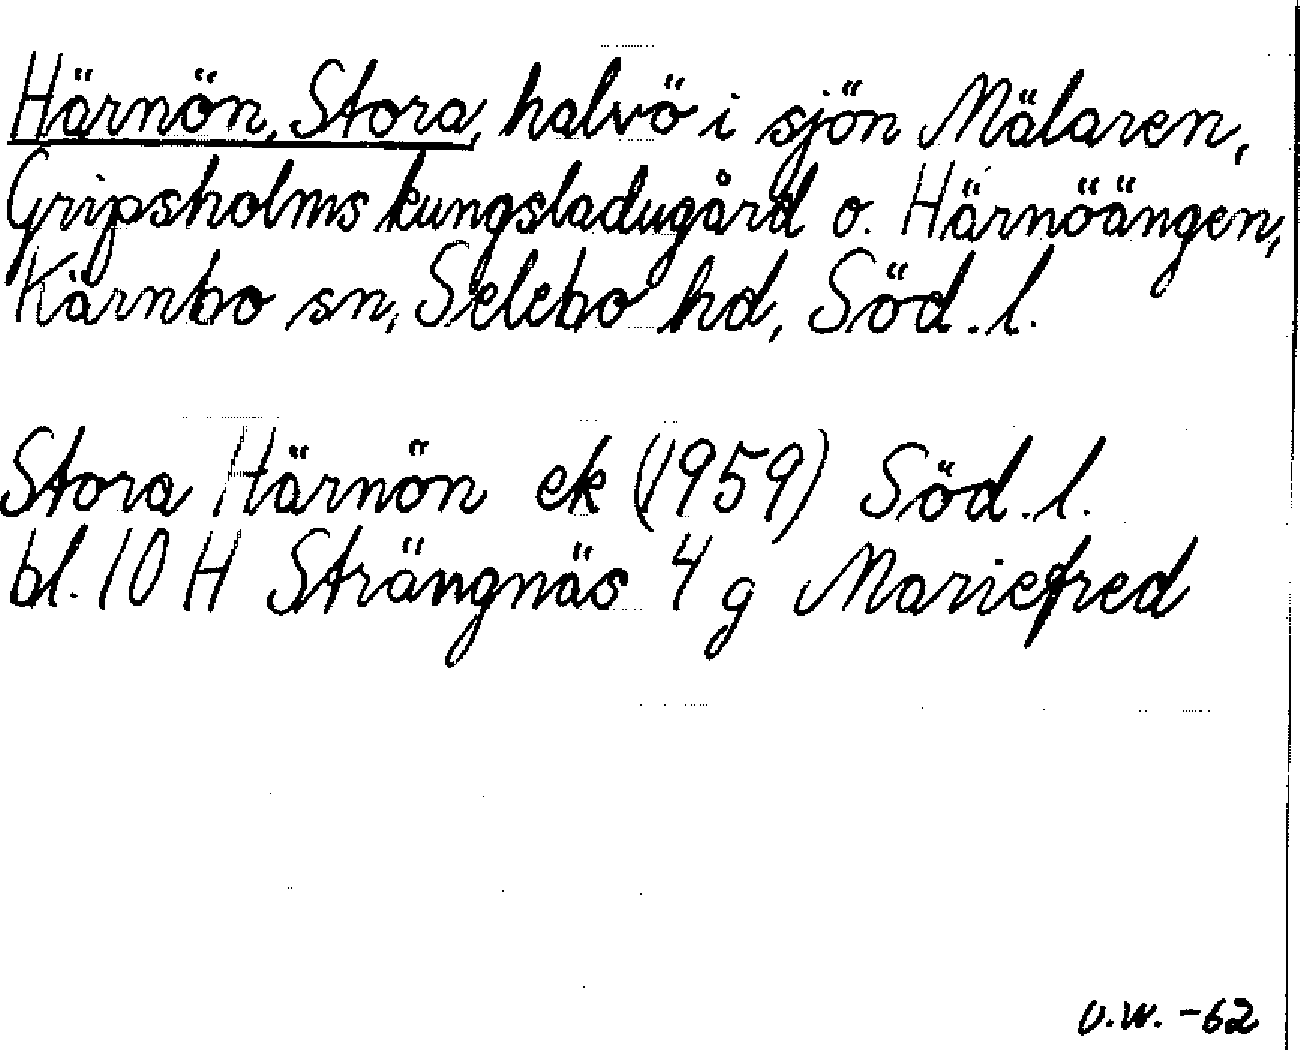 Härnön, Stora, halvö i sjön Mälaren,
Gripsholms kungsladugård o. Härnöängen,
Kärnbo sn, Selebo hd, Söd. l.
Stora Härnön ek (1959) Söd. l.
bl. 10 H Strängnäs 4 g Mariefred
U.W. -62